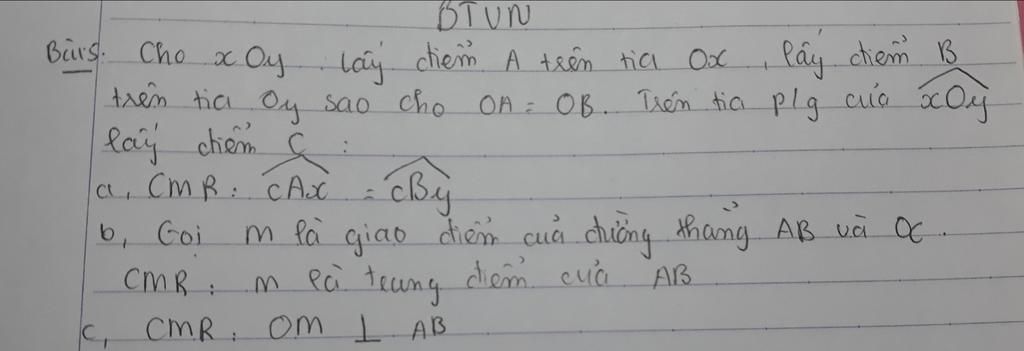 BTVN
Bài 5. Cho xOy. lấy điểm A trên tia Ox, lấy điểm B
trên tia Oy sao cho OA = OB. Trên tia p/g của xOy
lấy điểm C :
a, CMR: CAx = CBy
b, Gọi M là giao điểm của đường thẳng AB và OC.
CMR: M là trung điểm của AB
c, CMR: OM ⊥ AB